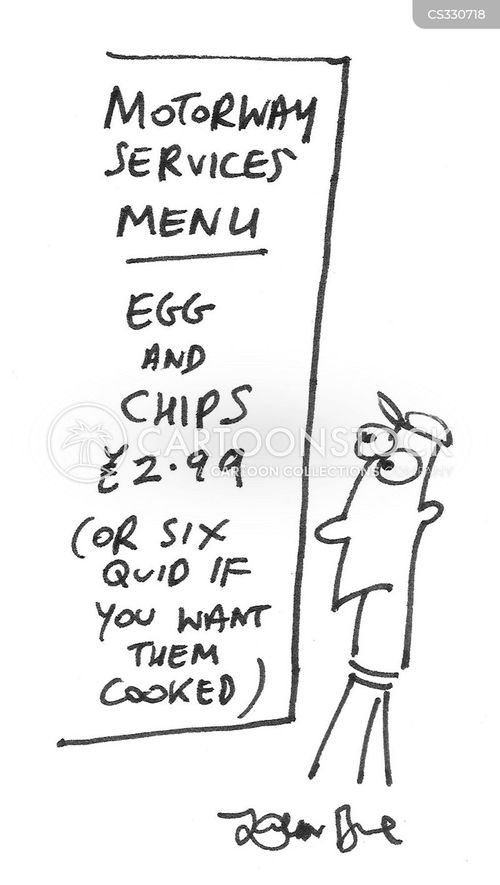 CS330718
MOTORWAY
SERVICES
MENU
EGG
AND
CHIPS
£2.99
CARTOONSTOCK
A CARTOON COLLECTIONS COMPANY
(OR SIX
QUID IF
YOU WANT
THEM
COOKED)